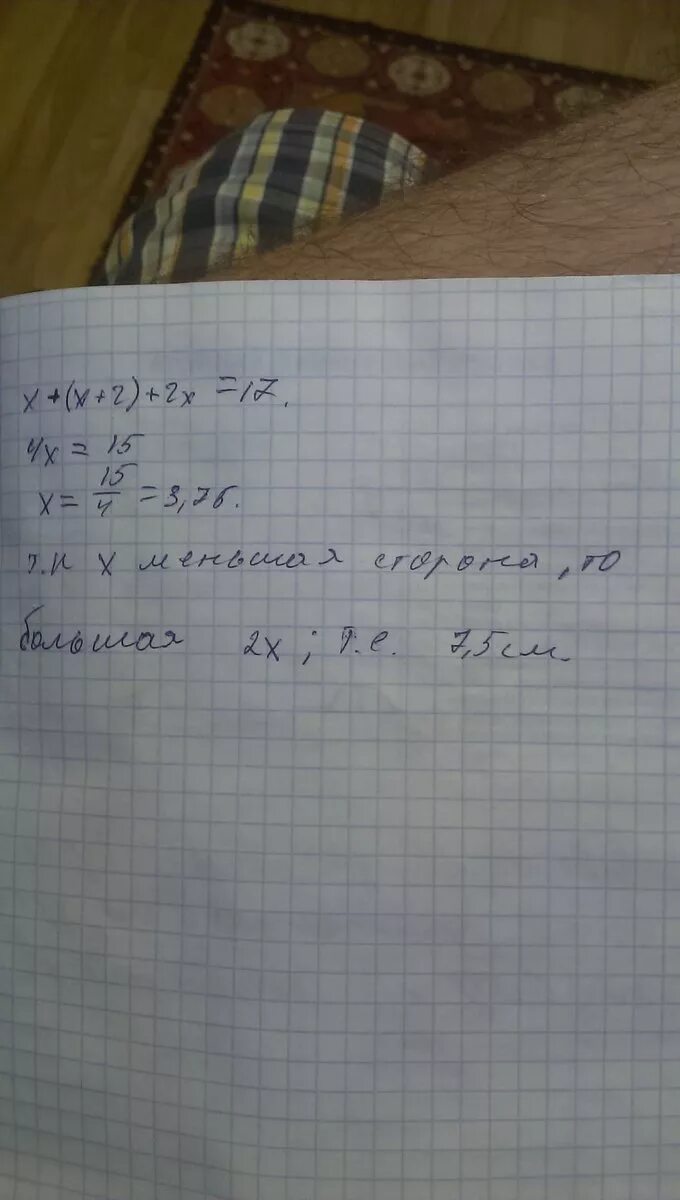 x+(x+2)+2x=17.
4x=15
x=15/4=3,75.
т.к x меньшая сторона, то
большая 2x; т.е. 7,5см.